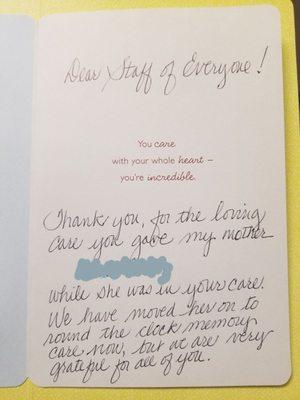 Dear Staff of Everyone!
You care
with your whole heart –
you're incredible.
Thank you, for the loving
care you gave my mother
while she was in your care.
We have moved her on to
round the clock memory
care now, but we are very
grateful for all of you.